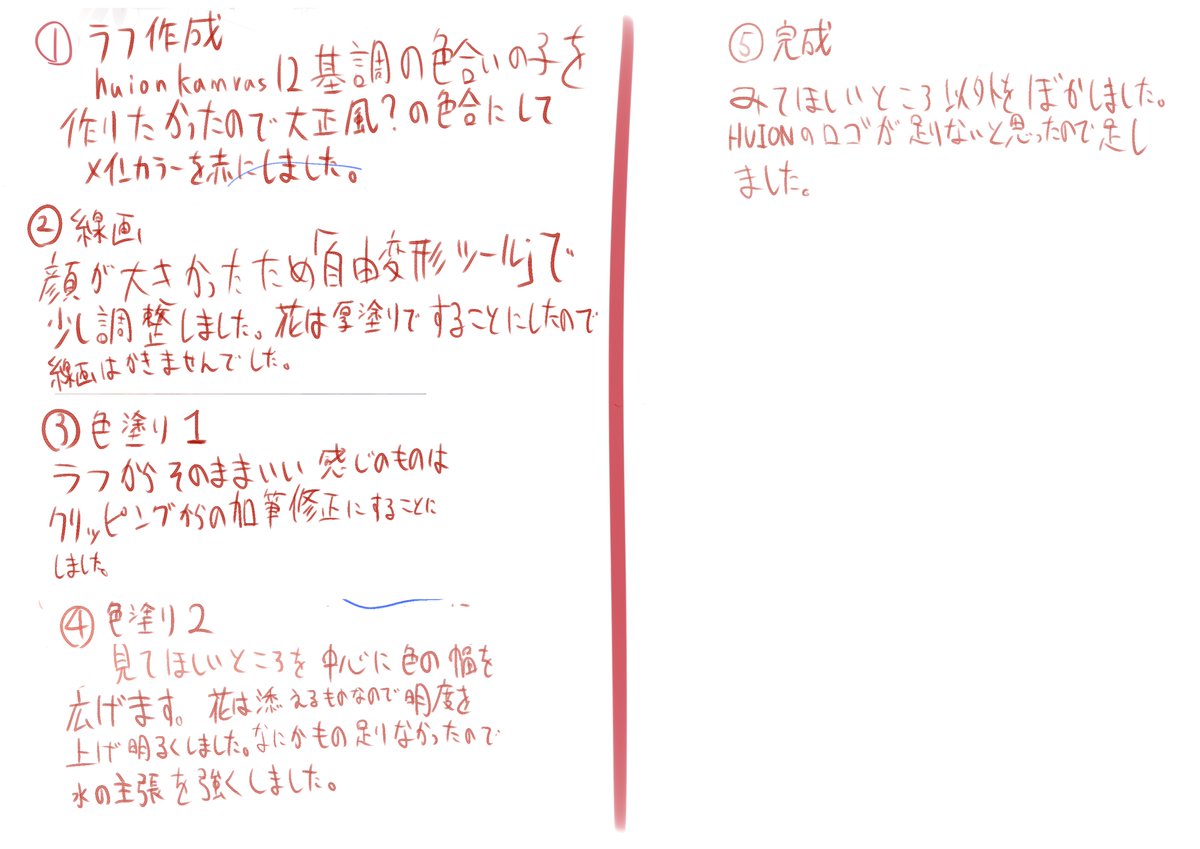 ① ラフ作成
huion kamvas 12 基調の色合いの子を
作りたかったので大正風?の色合にして
メインカラーを赤にしました。
② 線画
顔が大きかったため「自由変形ツール」で
少し調整しました。花は厚塗りですることにしたので
線画はかきませんでした。
③ 色塗り1
ラフからそのままいい感じのものは
クリッピングからの加筆修正にすることに
しました。
④ 色塗り2
見てほしいところを中心に色の幅を
広げます。花は添えるものなので明度を
上げ明るくしました。なにかもの足りなかったので
水の主張を強くしました。
⑤ 完成
みてほしいところ以外をぼかしました。
HUIONのロゴが足りないと思ったので足し
ました。